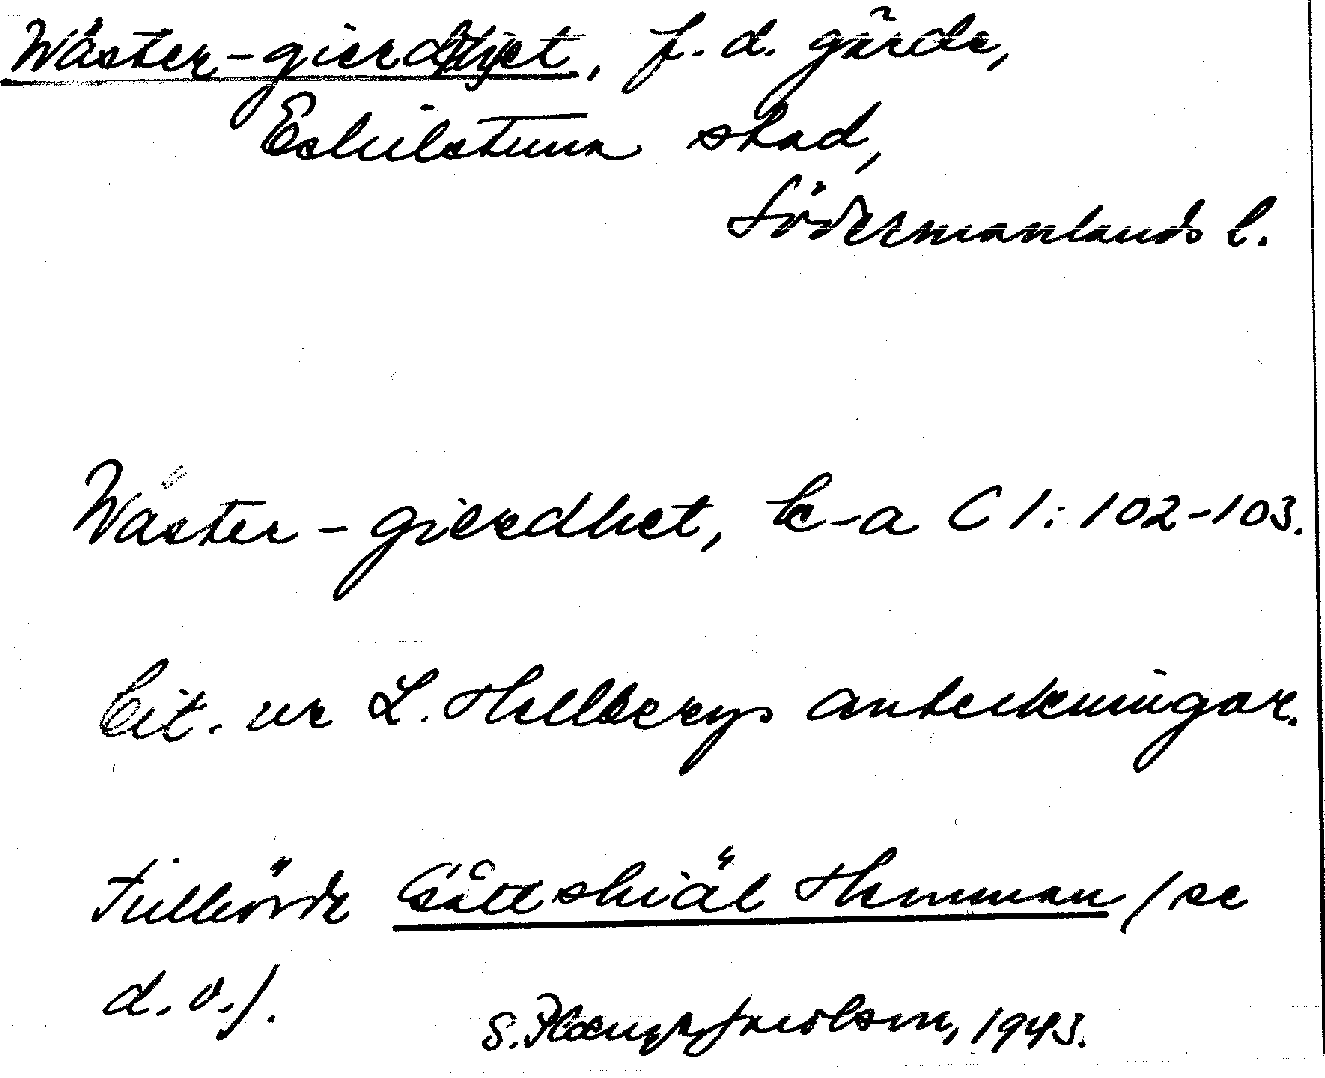 Wäster-gierdhet, f. d. gärde,
Eskilstuna stad,
Södermanlands l.
Wäster-gierdhet, k-a C 1: 102-103.
Cit. ur L. Hellbergs anteckningar.
Tillhörde Gåttskiäl Hemman / se
d. o./.
S. 1943.